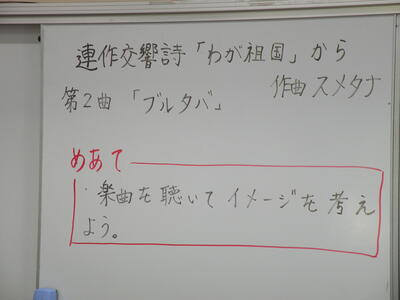 連作交響詩「わが祖国」から
作曲 スメタナ
第2曲 「ブルタバ」
めあて
・楽曲を聴いてイメージを考え
よう。